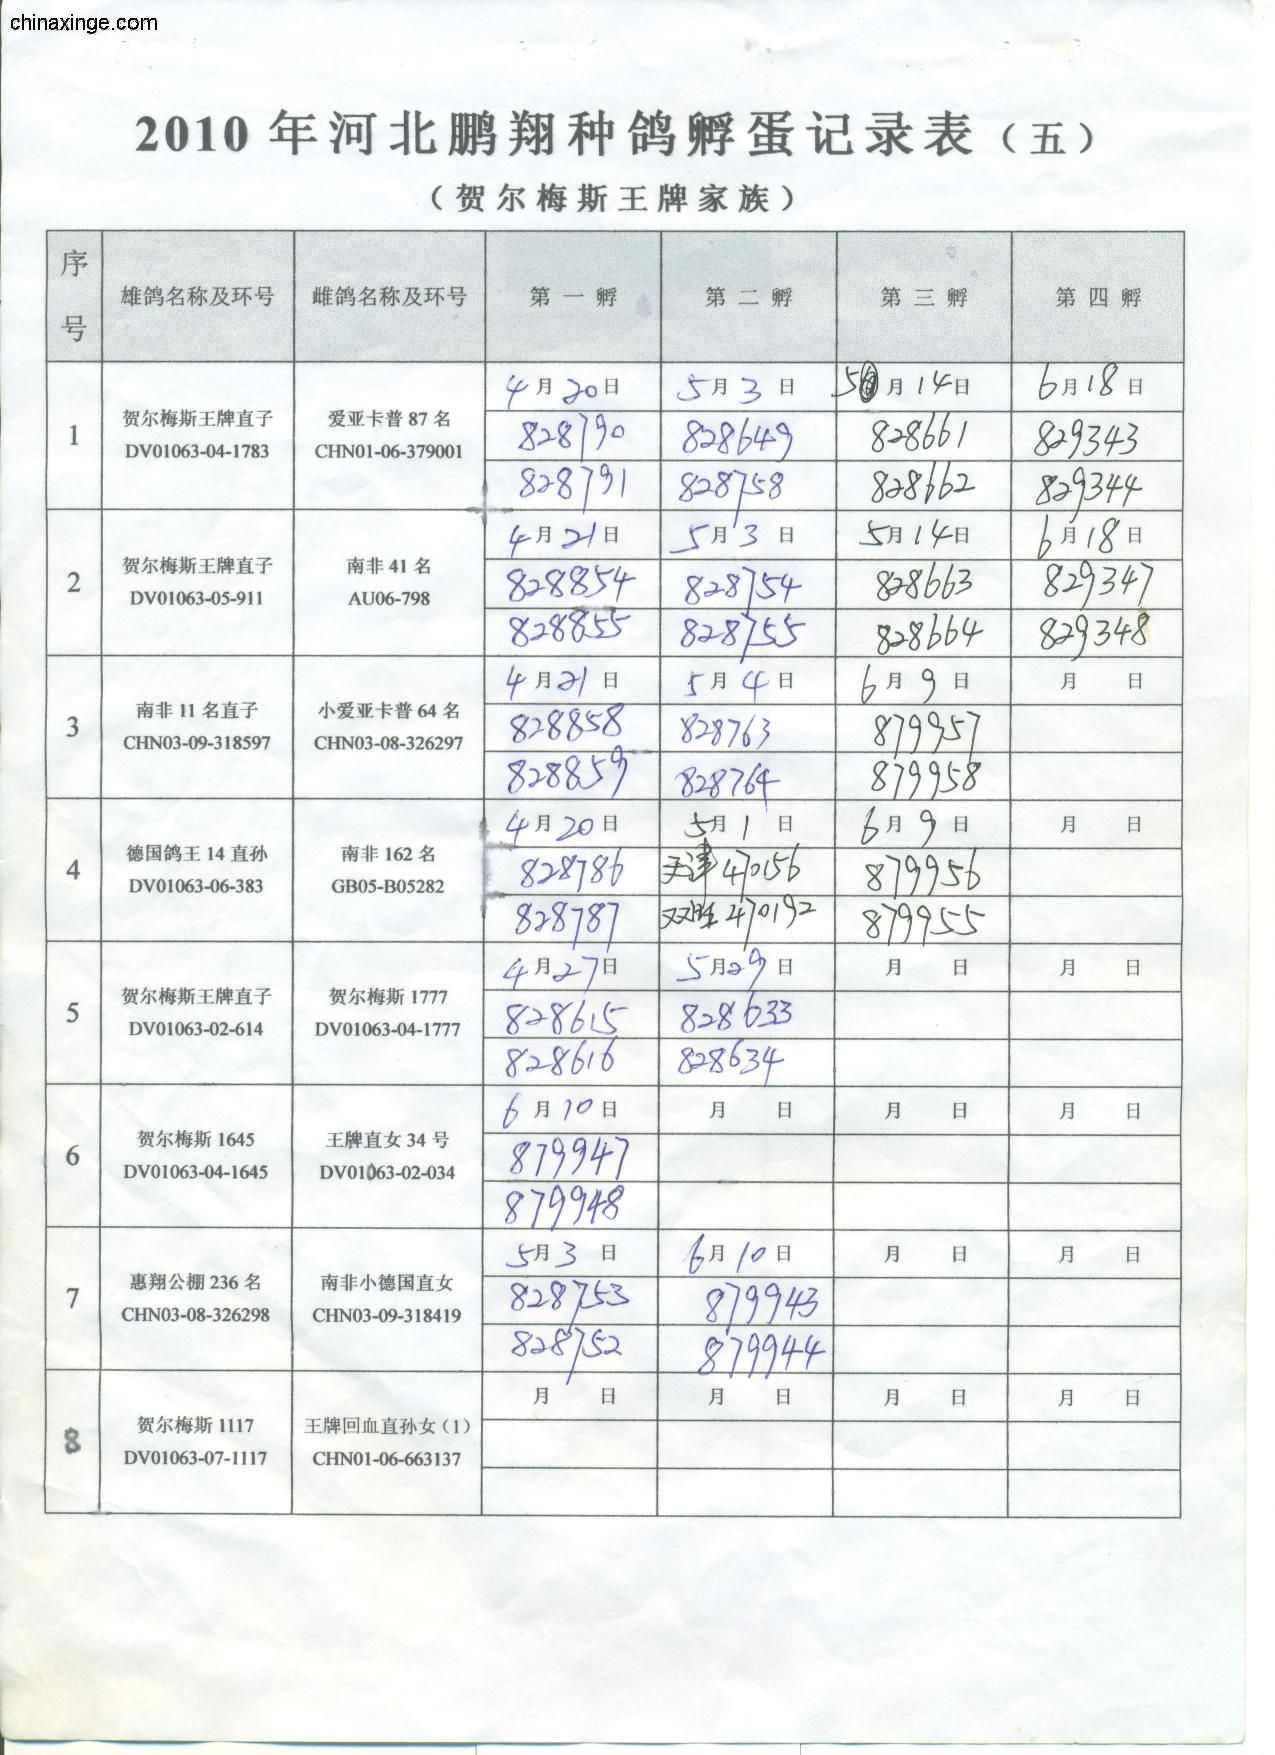 chinaxinge.com
2010 年河北鹏翔种鸽孵蛋记录表（五）
（贺尔梅斯王牌家族）
序号 雄鸽名称及环号 雌鸽名称及环号 第一孵 第二孵 第三孵 第四孵
4月20日 5月3日 5月14日 6月18日
1 贺尔梅斯王牌直子 爱亚卡普 87 名 828790 828649 828661 829343
DV01063-04-1783 CHN01-06-379001 828791 828758 828662 829344
4月21日 5月3日 5月14日 6月18日
2 贺尔梅斯王牌直子 南非 41 名 828854 828754 828663 829347
DV01063-05-911 AU06-798 828855 828755 828664 829348
4月21日 5月4日 6月9日 月 日
3 南非 11 名直子 小爱亚卡普 64 名 828858 828763 879957
CHN03-09-318597 CHN03-08-326297 828859 828764 879958
4月20日 5月1日 6月9日 月 日
4 德国鸽王 14 直孙 南非 162 名 828786 天津 470156 879956
DV01063-06-383 GB05-B05282 828787 双胜 470192 879955
4月27日 5月29日 月 日 月 日
5 贺尔梅斯王牌直子 贺尔梅斯 1777 828615 828633
DV01063-02-614 DV01063-04-1777 828616 828634
6月10日 月 日 月 日 月 日
6 贺尔梅斯 1645 王牌直女 34 号 879947
DV01063-04-1645 DV01063-02-034 879948
5月3日 6月10日 月 日 月 日
7 惠翔公棚 236 名 南非小德国直女 828753 879943
CHN03-08-326298 CHN03-09-318419 828752 879944
月 日 月 日 月 日 月 日
8 贺尔梅斯 1117 王牌回血直孙女（1）
DV01063-07-1117 CHN01-06-663137